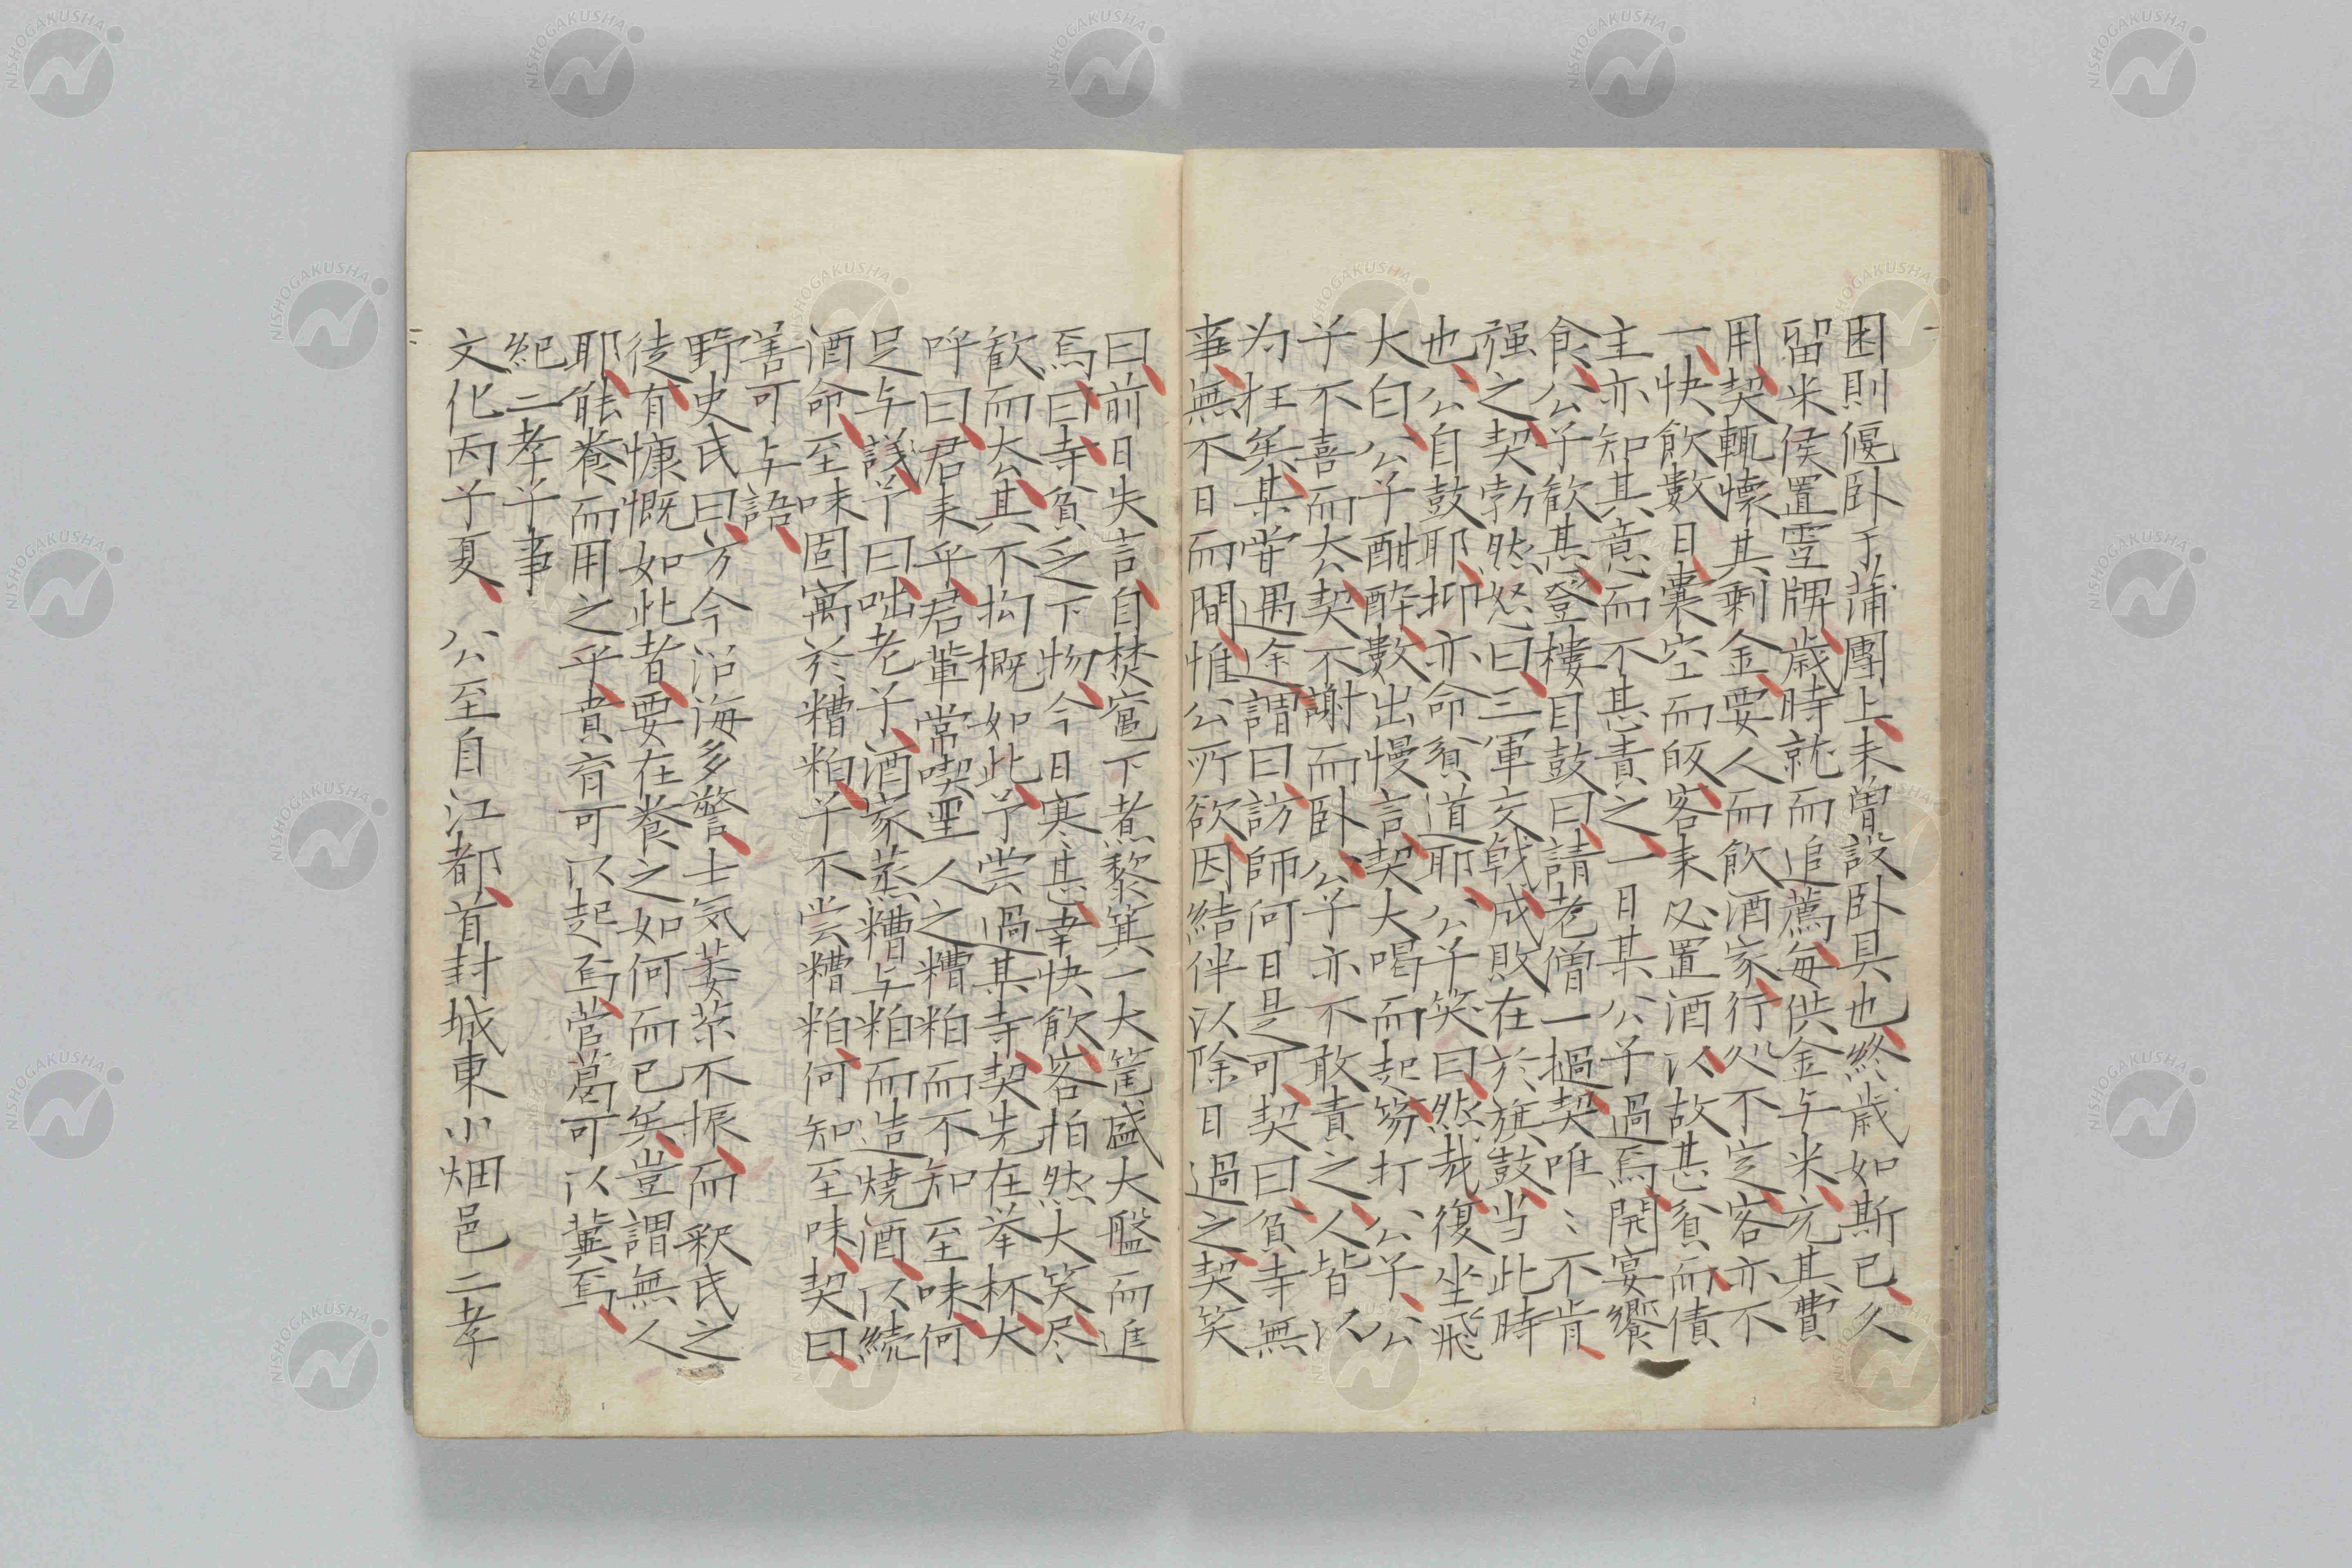 困則偃卧于蒲團上未曽設卧具也終歳如斯已久
留米侯置霊牌歳時就而追薦毎供金与米充其費
用契輒懐其剰金要人而飲酒家行処不定客亦不
一快飲數日囊空而皈客来必置酒以故甚貧而債
主亦知其意而不甚責之一日某公子過焉開宴饗
食公子歓甚登樓目鼓曰請老僧一撾契唯〻不肯
强之契勃然怒曰三軍交戦成敗在於旗鼓当此時
也公自鼓耶抑亦命貧道耶公子笑曰然哉復坐飛
大白公子酣醉數出慢言契大喝而起笏打公子公
子不喜而去契不謝而卧公子亦不敢責之人皆以
为狂矣某嘗遇途謂曰訪師何日是可契曰貧寺無
事無不日而間惟公所欲因結伴以除日過之契笑
曰前日失言自焚竃下煮藜箕一大筐盛大盤而進
焉曰寺貧乏下物今日寒甚幸快飲客拍然大笑尽
歓而去其不拘概如此予尝過某寺契先在挙杯大
呼曰君来乎君輩常喫聖人之糟粕而不知至味何
足与議予曰咄老子酒家蒸糟与粕而造燒酒以続
酒命至味固寓於糟粕子不尝糟粕何知至味契曰
善可与語
野史氏曰方今沿海多警士気萎苶不振而釈氏之
徒有慷慨如此者要在養之如何而已矣豈謂無人
耶能養而用之乎賁育可以起焉菅葛可以冀焉
紀二孝子事
文化丙子夏　公至自江都首封城東小畑邑二孝